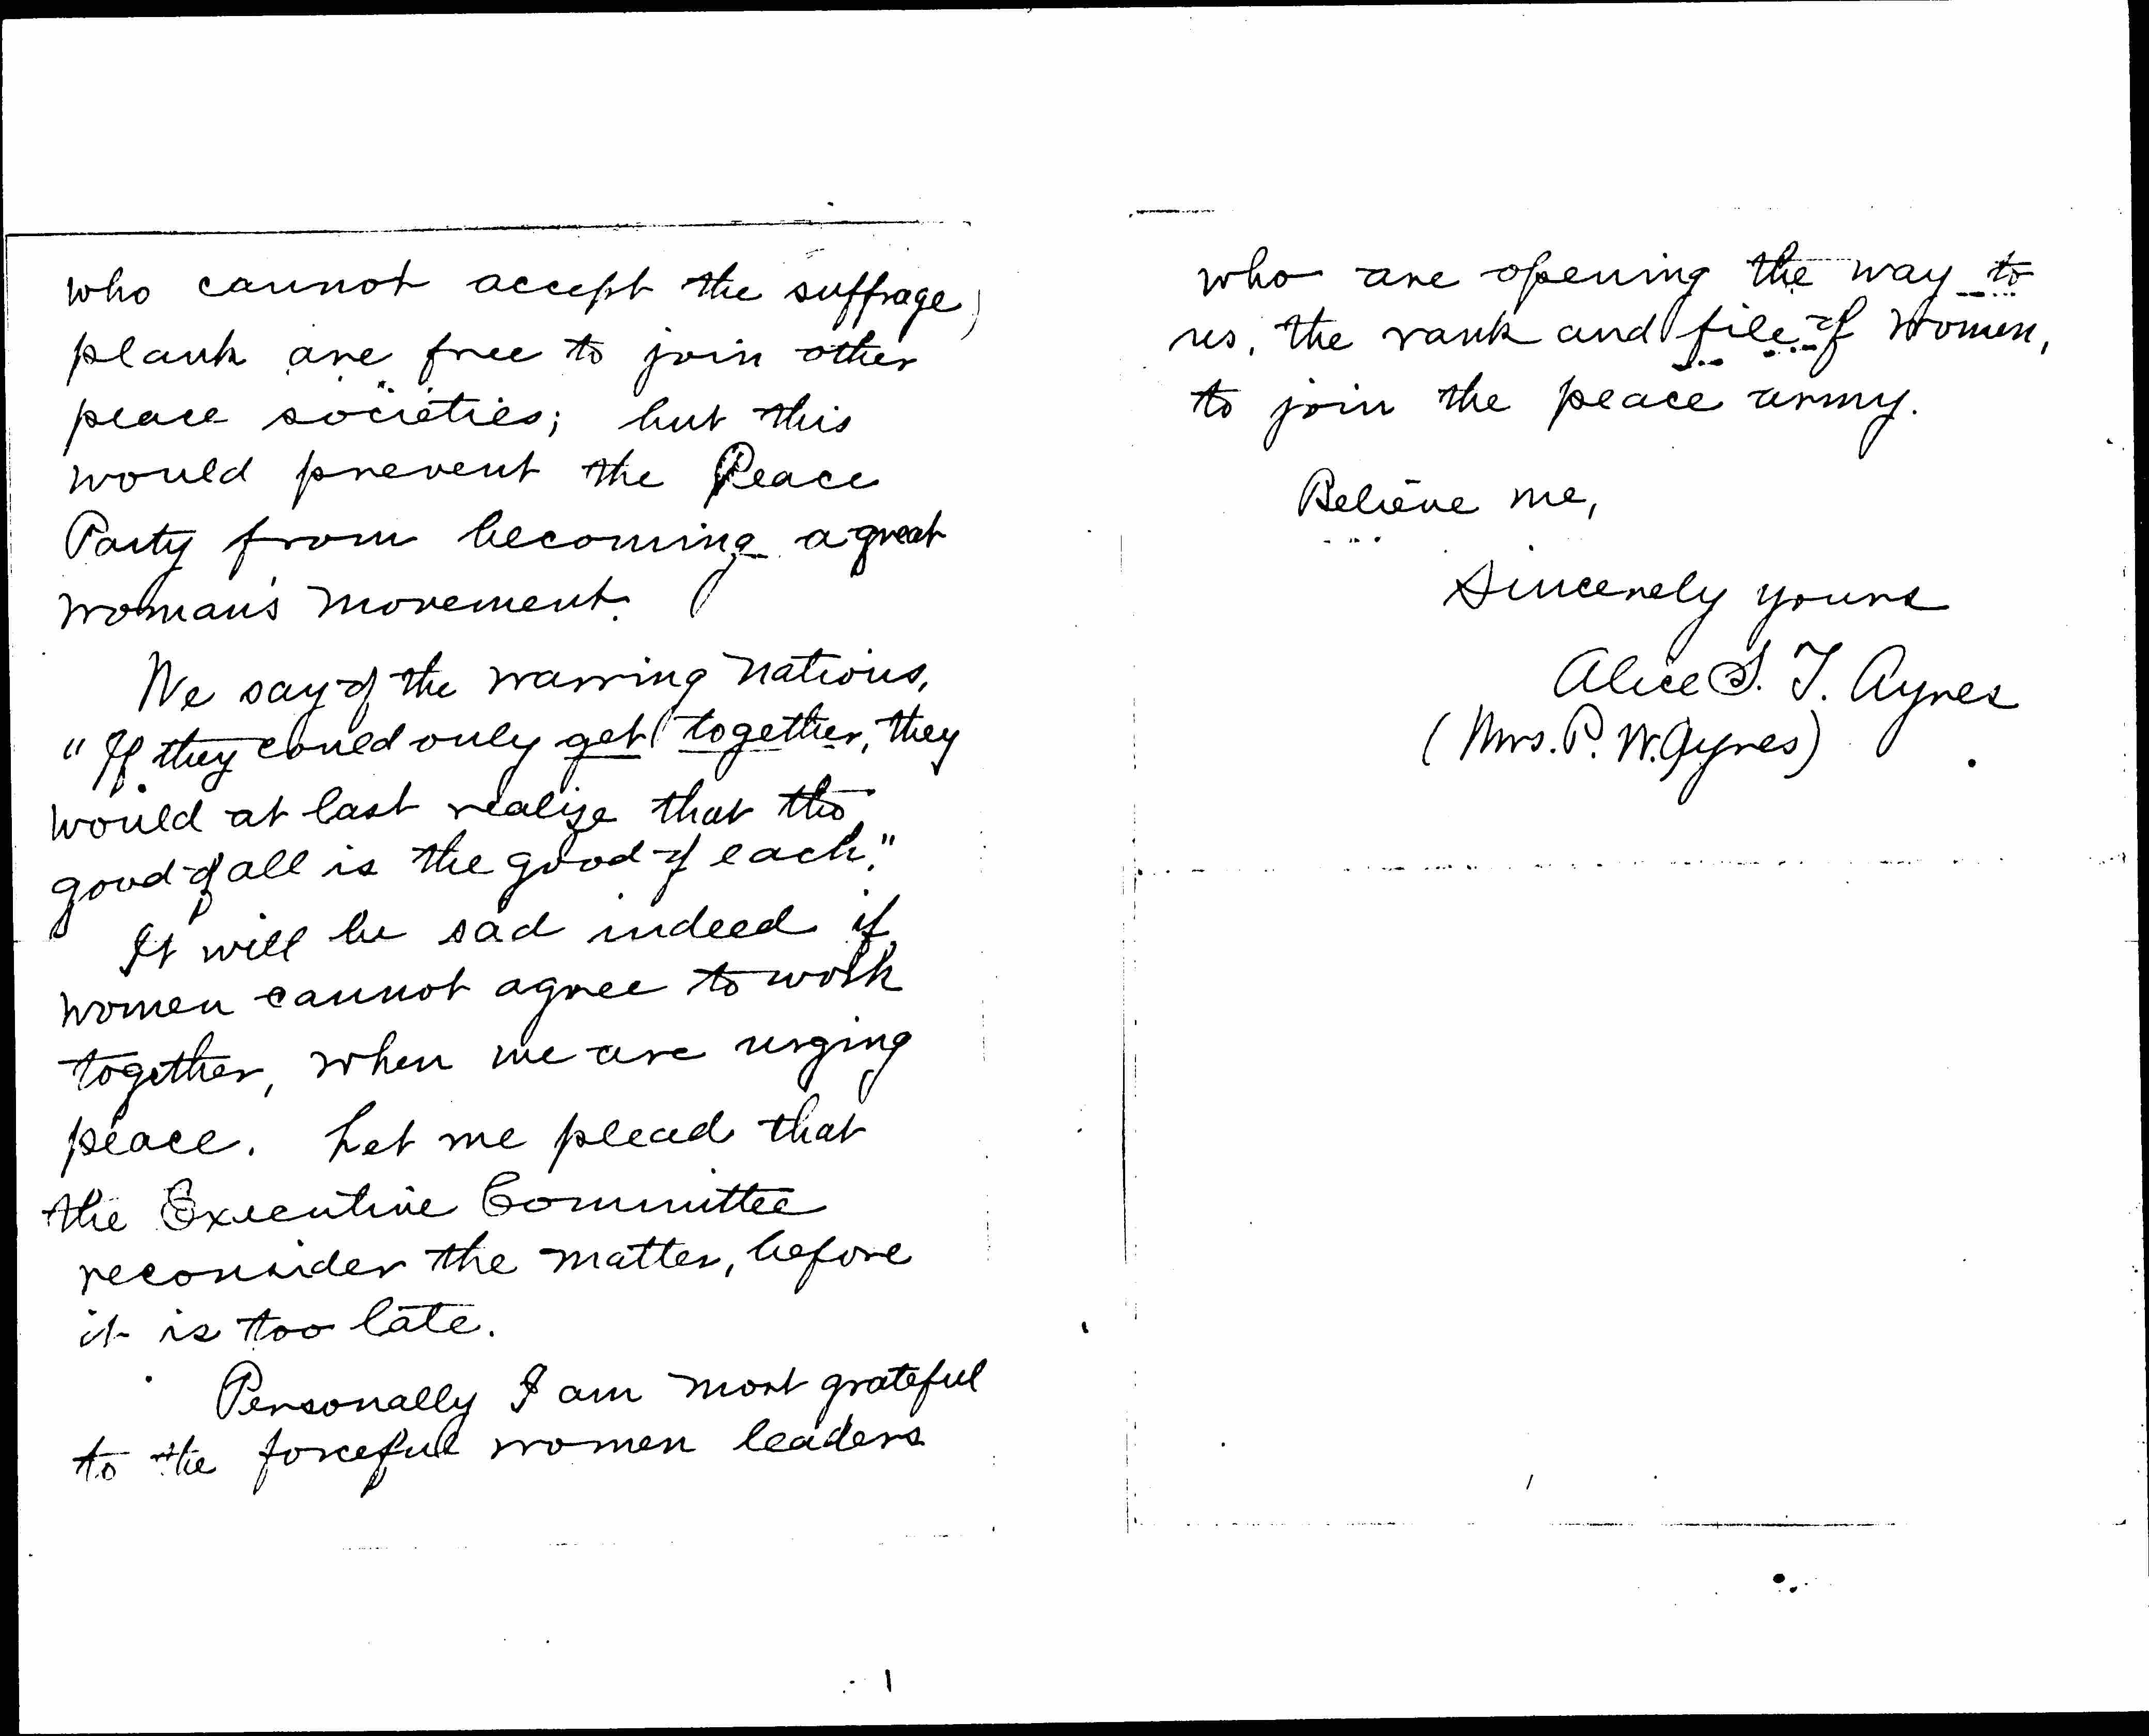 who cannot accept the suffrage
plank are free to join other
peace societies; but this
would prevent the Peace
Party from becoming a great
woman's movement.
We say of the warring nations,
"If they could only get together, they
would at last realize that the
good of all is the good of each."
It will be sad indeed if
women cannot agree to work
together, when we are urging
peace. Let me plead that
the Executive Committee
reconsider the matter, before
it is too late.
Personally I am most grateful
to the forceful women leaders
who are opening the way to
us, the rank and file of women,
to join the peace army.
Believe me,
Sincerely yours
Alice S. T. Ayres
(Mrs. P. W. Ayres)